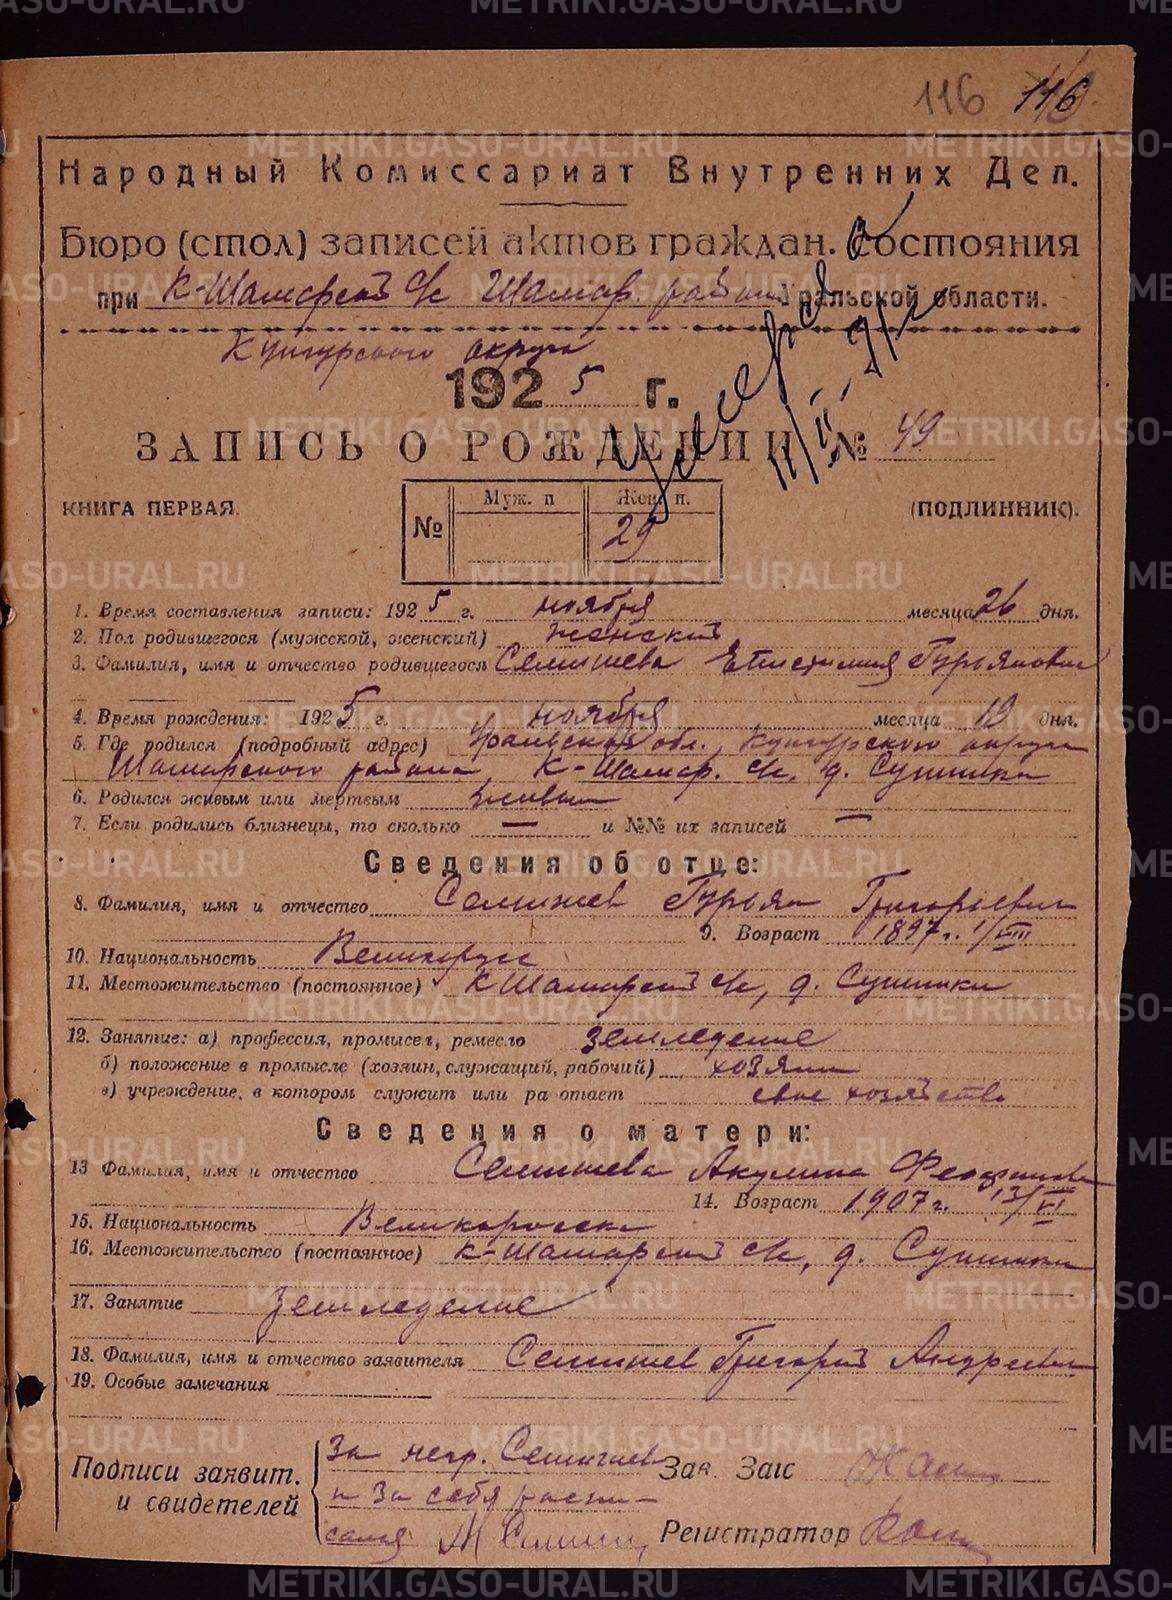 116 116
Народный Комиссариат Внутренних Дел.
Бюро (стол) записей актов граждан. состояния
при К-Шамарском с/с Шамар. района Уральской области.
Кунгурского округа
1925 г.
Умерла
ЗАПИСЬ О РОЖДЕНИИ № 49
КНИГА ПЕРВАЯ. (ПОДЛИННИК).
№ Муж. п Жен. п.
29
1. Время составления записи: 1925 г. ноября месяца 26 дня.
2. Пол родившегося (мужской, женский) женский
3. Фамилия, имя и отчество родившегося Селишева Епистимия Гурьяновна
4. Время рождения: 1925 г. ноября месяца 19 дня.
5. Где родился (подробный адрес) Уральской обл., Кунгурского округа
Шамарского района, К-Шамар. с/с, д. Сушинка
6. Родился живым или мертвым живым
7. Если родились близнецы, то сколько — и №№ их записей —
Сведения об отце:
8. Фамилия, имя и отчество Селишев Гурьян Григорьевич
9. Возраст 1897 г. 1/VIII
10. Национальность Великорусс
11. Местожительство (постоянное) К Шамарский с/с, д. Сушинка
12. Занятие: а) профессия, промысел, ремесло земледелие
б) положение в промысле (хозяин, служащий, рабочий) хозяин
в) учреждение, в котором служит или ра отает свое хозяйство
Сведения о матери:
13 Фамилия, имя и отчество Селишева Акулина
14. Возраст 1907 г. 13/VI
15. Национальность Великоросска
16. Местожительство (постоянное) К-Шамарский с/с, д. Сушинка
17. Занятие Земледелие
18. Фамилия, имя и отчество заявителя Селишев Григорий Андреевич
19. Особые замечания
Подписи заявит. и свидетелей
За негр. Селишев
и за себя распи-
сался
Зав. Загс
Регистратор
METRIKI.GASO-URAL.RU